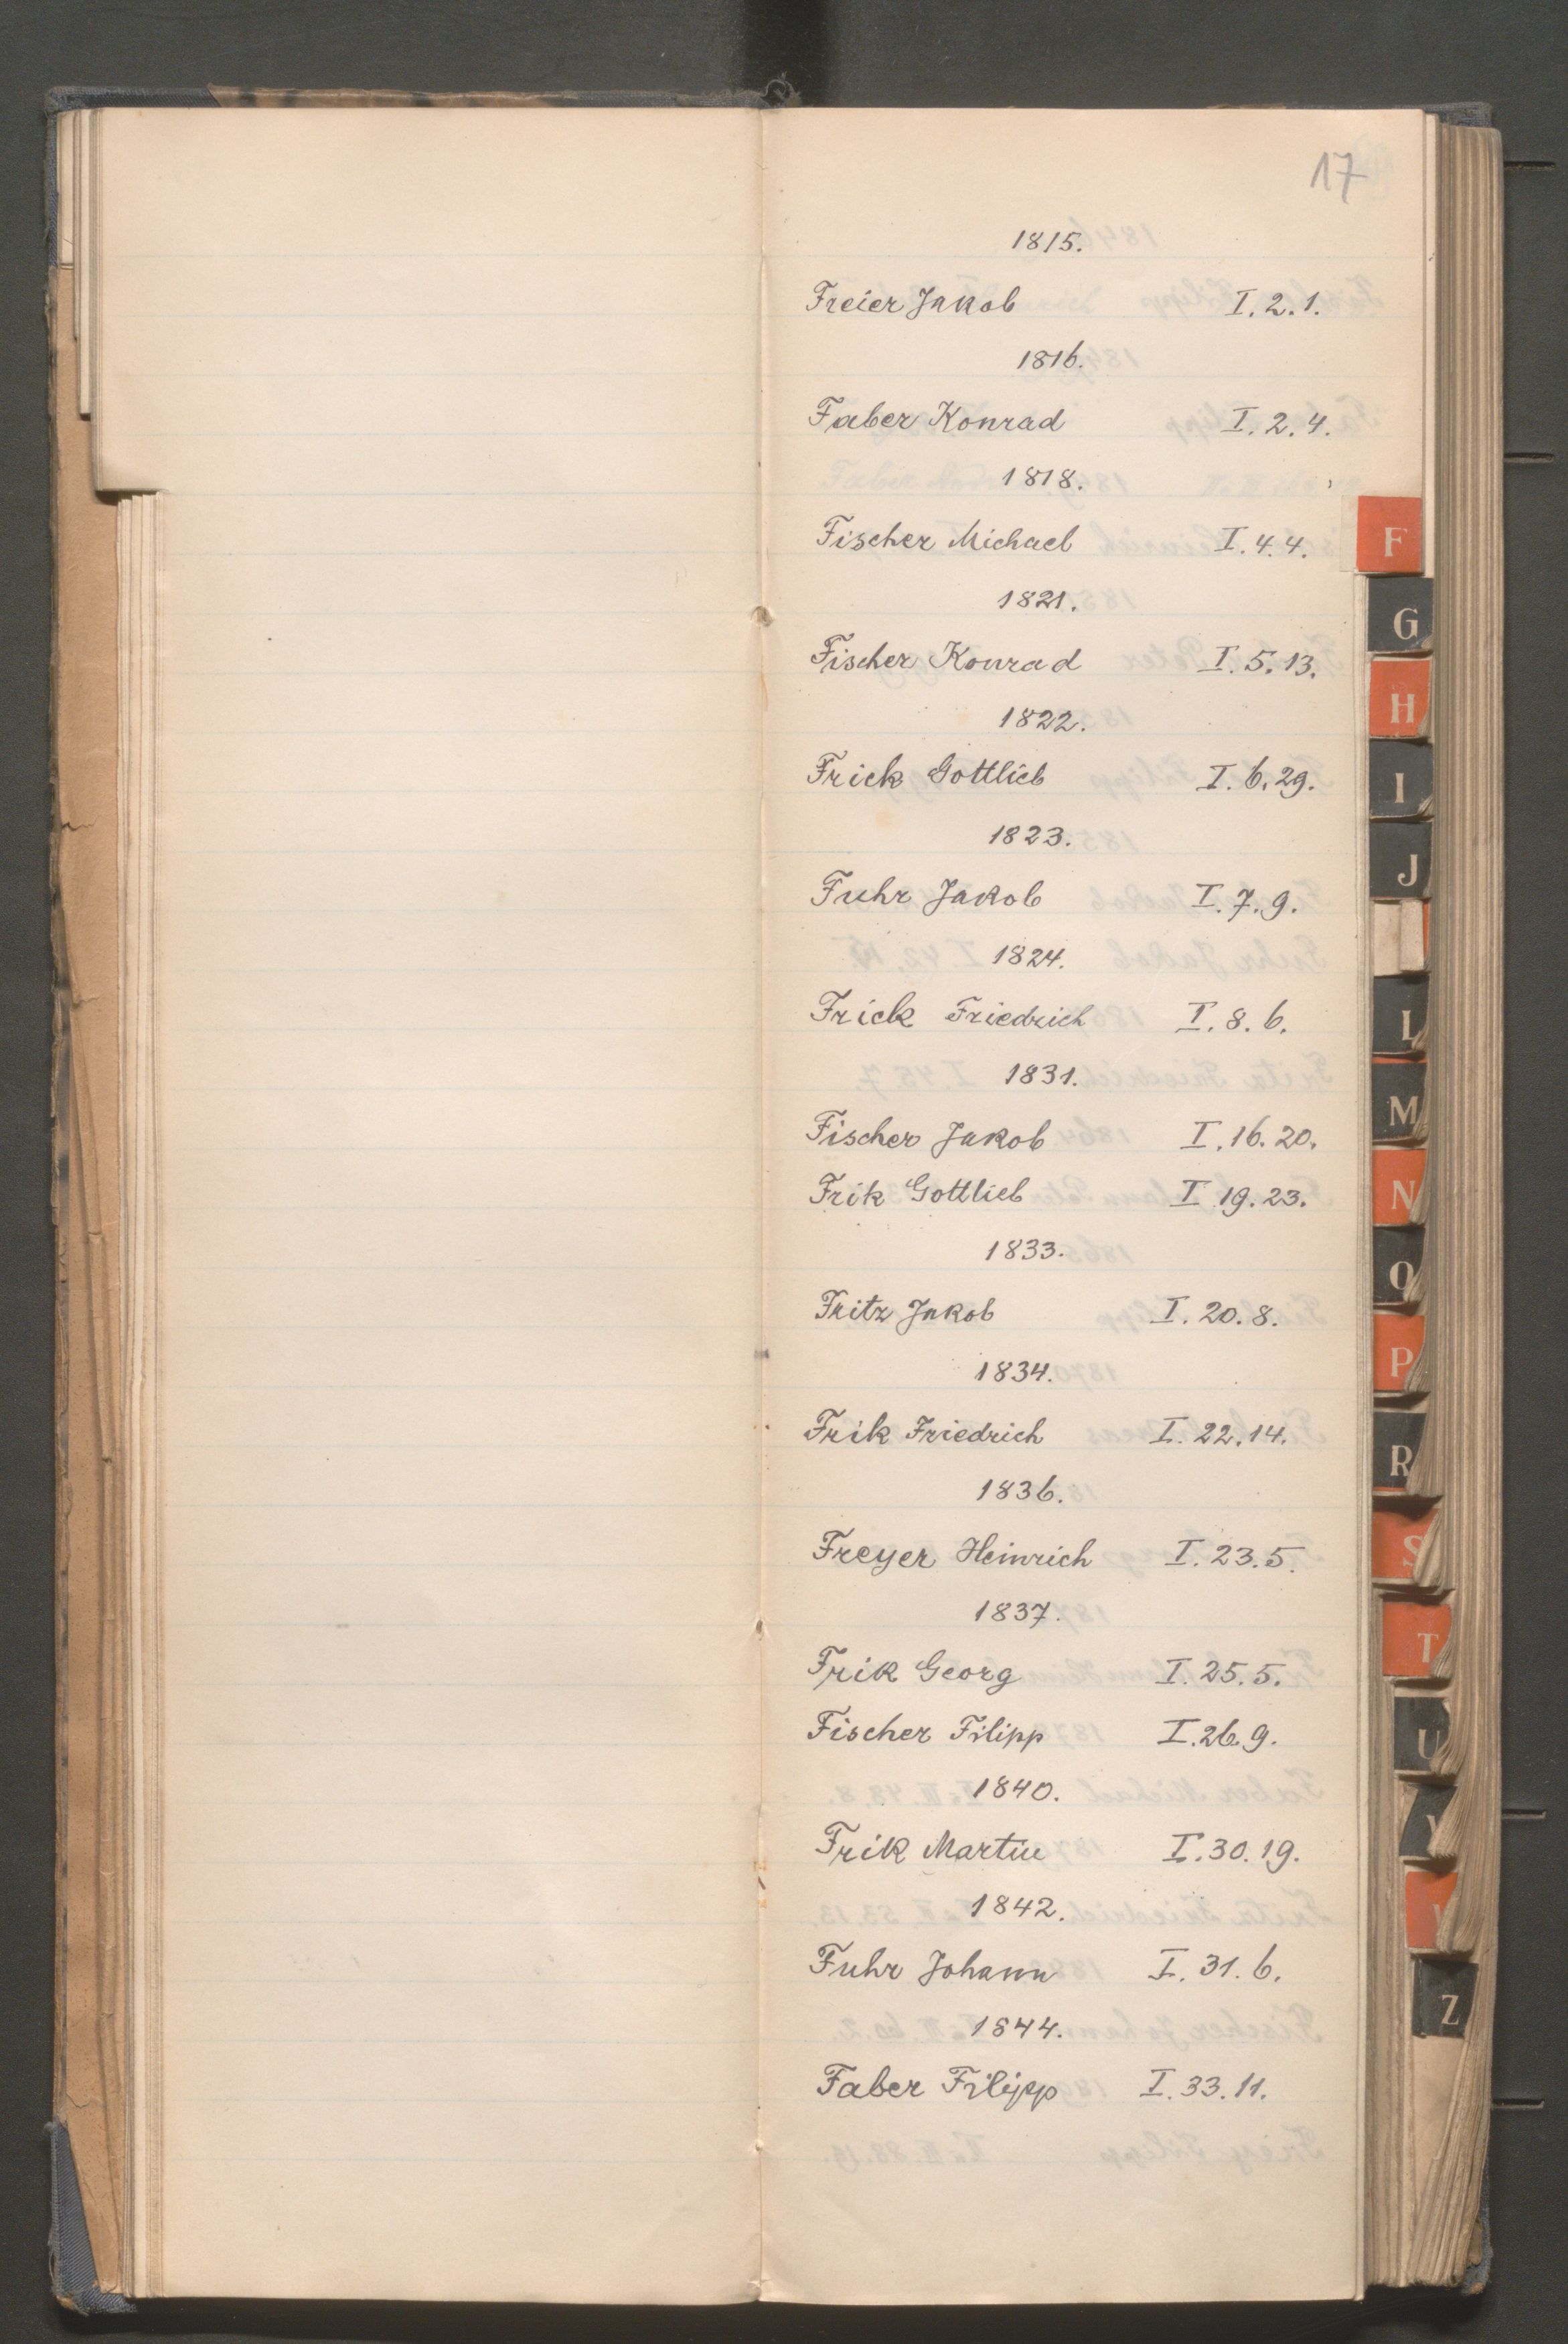 17
1815.
Freier Jakob I. 2. 1.
1816.
Faber Konrad I. 2. 4.
1818.
Fischer Michael I. 4. 4.
1821.
Fischer Konrad I. 5. 13.
1822.
Frick Gottlieb I. 6. 29.
1823.
Fuhr Jakob I. 7. 9.
1824.
Frick Friedrich I. 8. 6.
1831.
Fischer Jakob I. 16. 20.
Frik Gottlieb I 19. 23.
1833.
Fritz Jakob I. 20. 8.
1834.
Frik Friedrich I. 22. 14.
1836.
Freyer Heinrich I. 23. 5.
1837.
Frik Georg I. 25. 5.
Fischer Filipp I. 26. 9.
1840.
Frik Martin I. 30. 19.
1842.
Fuhr Johann I. 31. 6.
1844.
Faber Filipp I. 33. 11.
F
G
H
I
J
L
M
N
O
P
R
S
T
U
Z